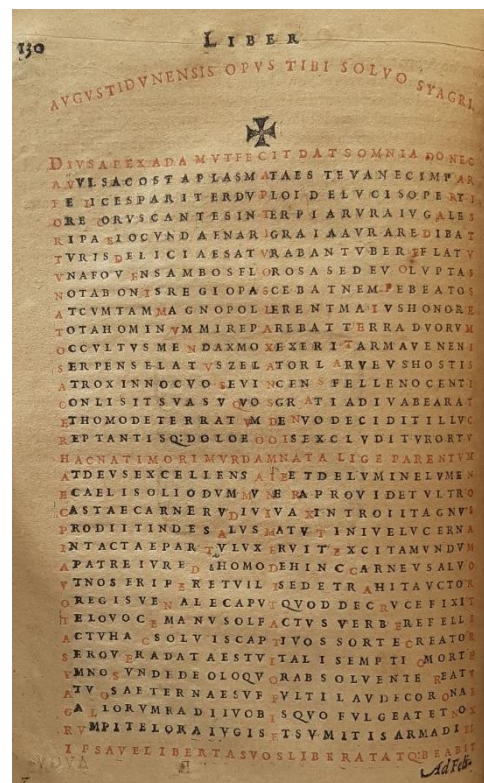 130
LIBER
AVGVSTIDVNENSIS OPVS TIBI SOLVO SYAGRI.
DIVSAPEXADAMVTFECITDATSOMNIADONEC
AVVLSACOSTAPLASMATAESTEVANECIMPAR
FELICESPARITERDVPLOIDELVCISOPERTI
ORECORVSCANTESINTERPIARVRAIVGALES
RIPAEIOCVNDAENARIGRAIAAVRAREDIBAT
TVRISDELICIAESATVRABANTVBEREFLATV
VNAFOVENSAMBOSFLOROSASEDEVOLVPTAS
NOTABONISREGIOPASCEBATNEMPEBEATOS
ATCVMTAMMAGNOPOLLERENTMAIVSHONORE
TOTAHOMINVMMIREPAREBATTERRADVORVM
OCCVLTVSMENDAXMOXEXERITARMAVENENI
SERPENSELATVSZELATORLARVEVSHOSTIS
ATROXINNOCVOSEVINCENSFELLENOCENTI
CONLISITSVASVQVOSGRATIADIVABEARAT
ETHOMODETERRATVMDENVODECIDITILLVC
REPTANTISQ:DOLOEOOISEXCLVDITVRORTV
HACNATIMORIMVRDAMNATALIGEPARENTVM
ATDEVSEXCELLENSAIEETDELVMINELVMEN
ECAELISOLIODVMMVNERAPROVIDETVLTRO
CASTAECARNERVDIVIVAXINTROIITAGNVS
PRODIITINDESALVSMATVTINIVELVCERNA
INTACTAEPARTVLVXERVITEXCITAMVNDVM
APATREIVREDSHOMODEHINCCARNEVSALVO
VTNOSERIPERETVILISEDETRAHITAVCTOR
OREGISVENALECAPVTQVODDECRVCEFIXIT
TELOVOCEMANVSOLFACTVSVERBEREFELLE
ACTVHACSOLVISCAPTIVOSSORTECREATOR
SEROVERADATAESTVITALISEMPTIOMORTE
YMNOSVNDEDEOLOQVORABSOLVENTEREATV
ATVOSAETERNAESVFFVLTILAVDECORONAE
GALLORVMRADIIVOBISQVOFVLGEATETNOX
RVMPITELORAIVGISETSVMITISARMADIEI
IPSAVELIBERTASVOSLIBERATATQ:BEABIT
Ad Feli-